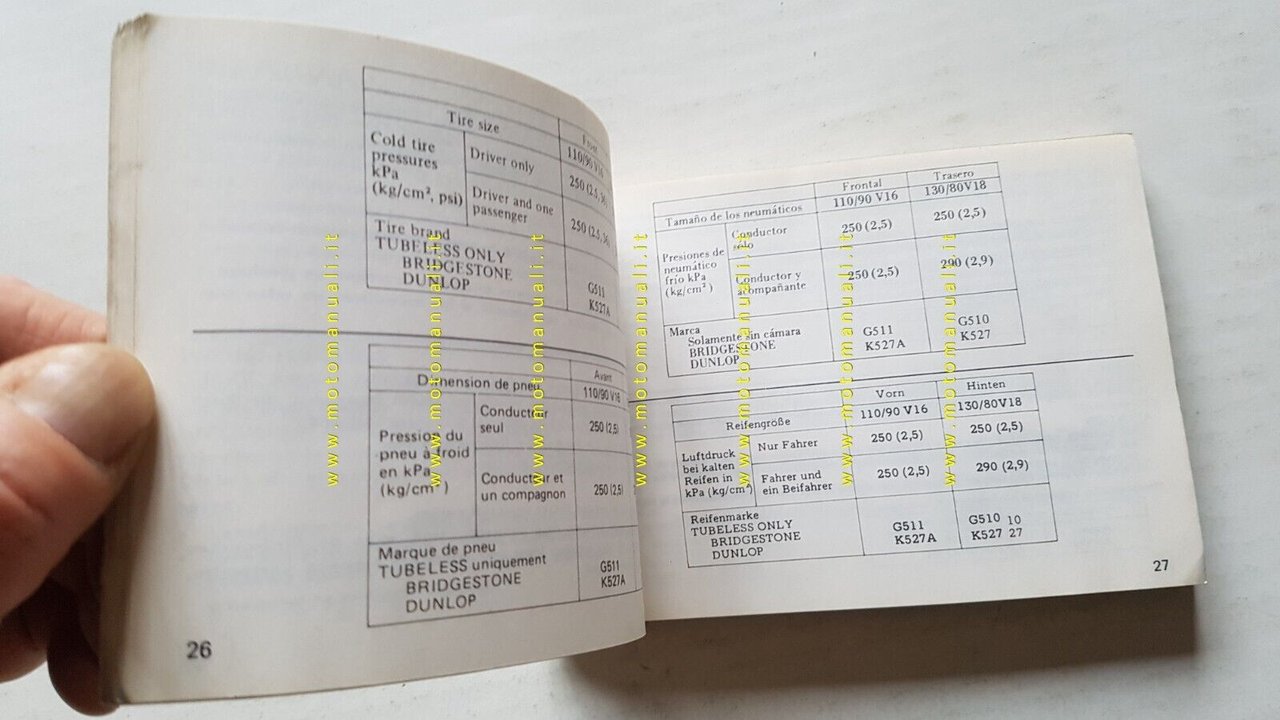 Front
Tire size
110/90 V16
Cold tire
pressures
kPa
(kg/cm², psi)
Driver only
250 (2.5, 36)
Driver and one
passenger
250 (2.5, 36)
Tire brand
TUBELESS ONLY
BRIDGESTONE
DUNLOP
G511
K527A
Avant
Dimension de pneu
110/90 V16
Pression du
pneu à froid
en kPa
(kg/cm²)
Conducteur
seul
250 (2,5)
Conducteur et
un compagnon
250 (2,5)
Marque de pneu
TUBELESS uniquement
BRIDGESTONE
DUNLOP
G511
K527A
26
Frontal Trasero
Tamaño de los neumáticos 110/90 V16 130/80V18
Presiones de
neumático
frío kPa
(kg/cm²)
Conductor
sólo
250 (2,5) 250 (2,5)
Conductor y
acompañante
250 (2,5) 290 (2,9)
Marca
Solamente sin cámara
BRIDGESTONE
DUNLOP
G511 G510
K527A K527
Vorn Hinten
Reifengröße 110/90 V16 130/80V18
Luftdruck
bei kalten
Reifen in
kPa (kg/cm²)
Nur Fahrer 250 (2,5) 250 (2,5)
Fahrer und
ein Beifahrer
250 (2,5) 290 (2,9)
Reifenmarke
TUBELESS ONLY
BRIDGESTONE
DUNLOP
G511 G510 10
K527A K527 27
27
www.motomanuali.it
www.motomanuali.it
www.motomanuali.it
www.motomanuali.it
www.motomanuali.it
www.motomanuali.it
www.motomanuali.it